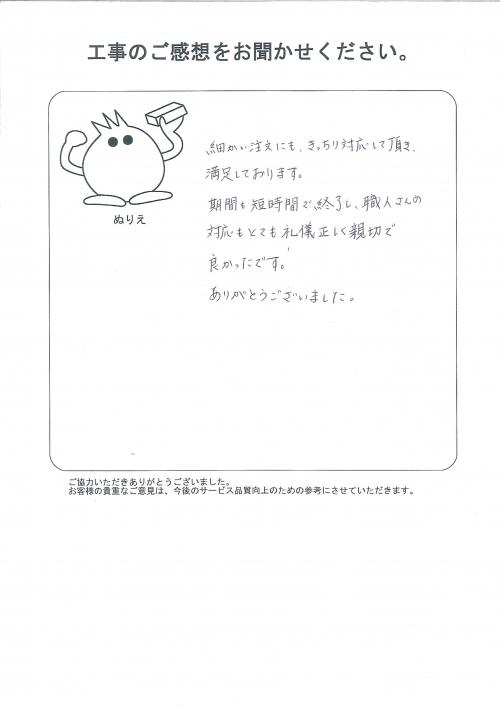 工事のご感想をお聞かせください。
細かい注文にも、きっちり対応して頂き、
満足しております。
期間も短時間で終了し、職人さんの
対応もとても礼儀正しく親切で
良かったです。
ありがとうございました。
ぬりえ
ご協力いただきありがとうございました。
お客様の貴重なご意見は、今後のサービス品質向上のための参考にさせていただきます。